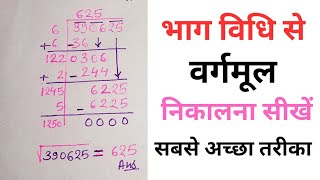 625
6 390625
+ 6 -36
122 0306
+ 2 -244
1245 6225
5 -6225
1250 0000
√390625 = 625
Ans.
भाग विधि से
वर्गमूल
निकालना सीखें
सबसे अच्छा तरीका